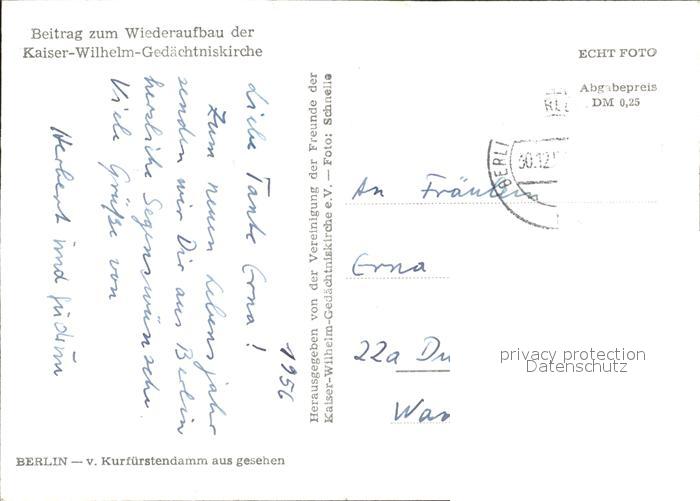 Beitrag zum Wiederaufbau der
Kaiser-Wilhelm-Gedächtniskirche
ECHT FOTO
Abgabepreis
DM 0,25
BERLI
30.12.
1956
Liebe Tante Erna!
Zum neuen Lebensjahr
senden wir Dir aus Berlin
herzliche Segenswünsche.
Viele Grüße von
Herbert und Gudrun
Herausgegeben von der Vereinigung der Freunde der
Kaiser-Wilhelm-Gedächtniskirche e.V. — Foto: Schnelle
An Fräulein
Erna
22a Du
privacy protection
Datenschutz
BERLIN — v. Kurfürstendamm aus gesehen